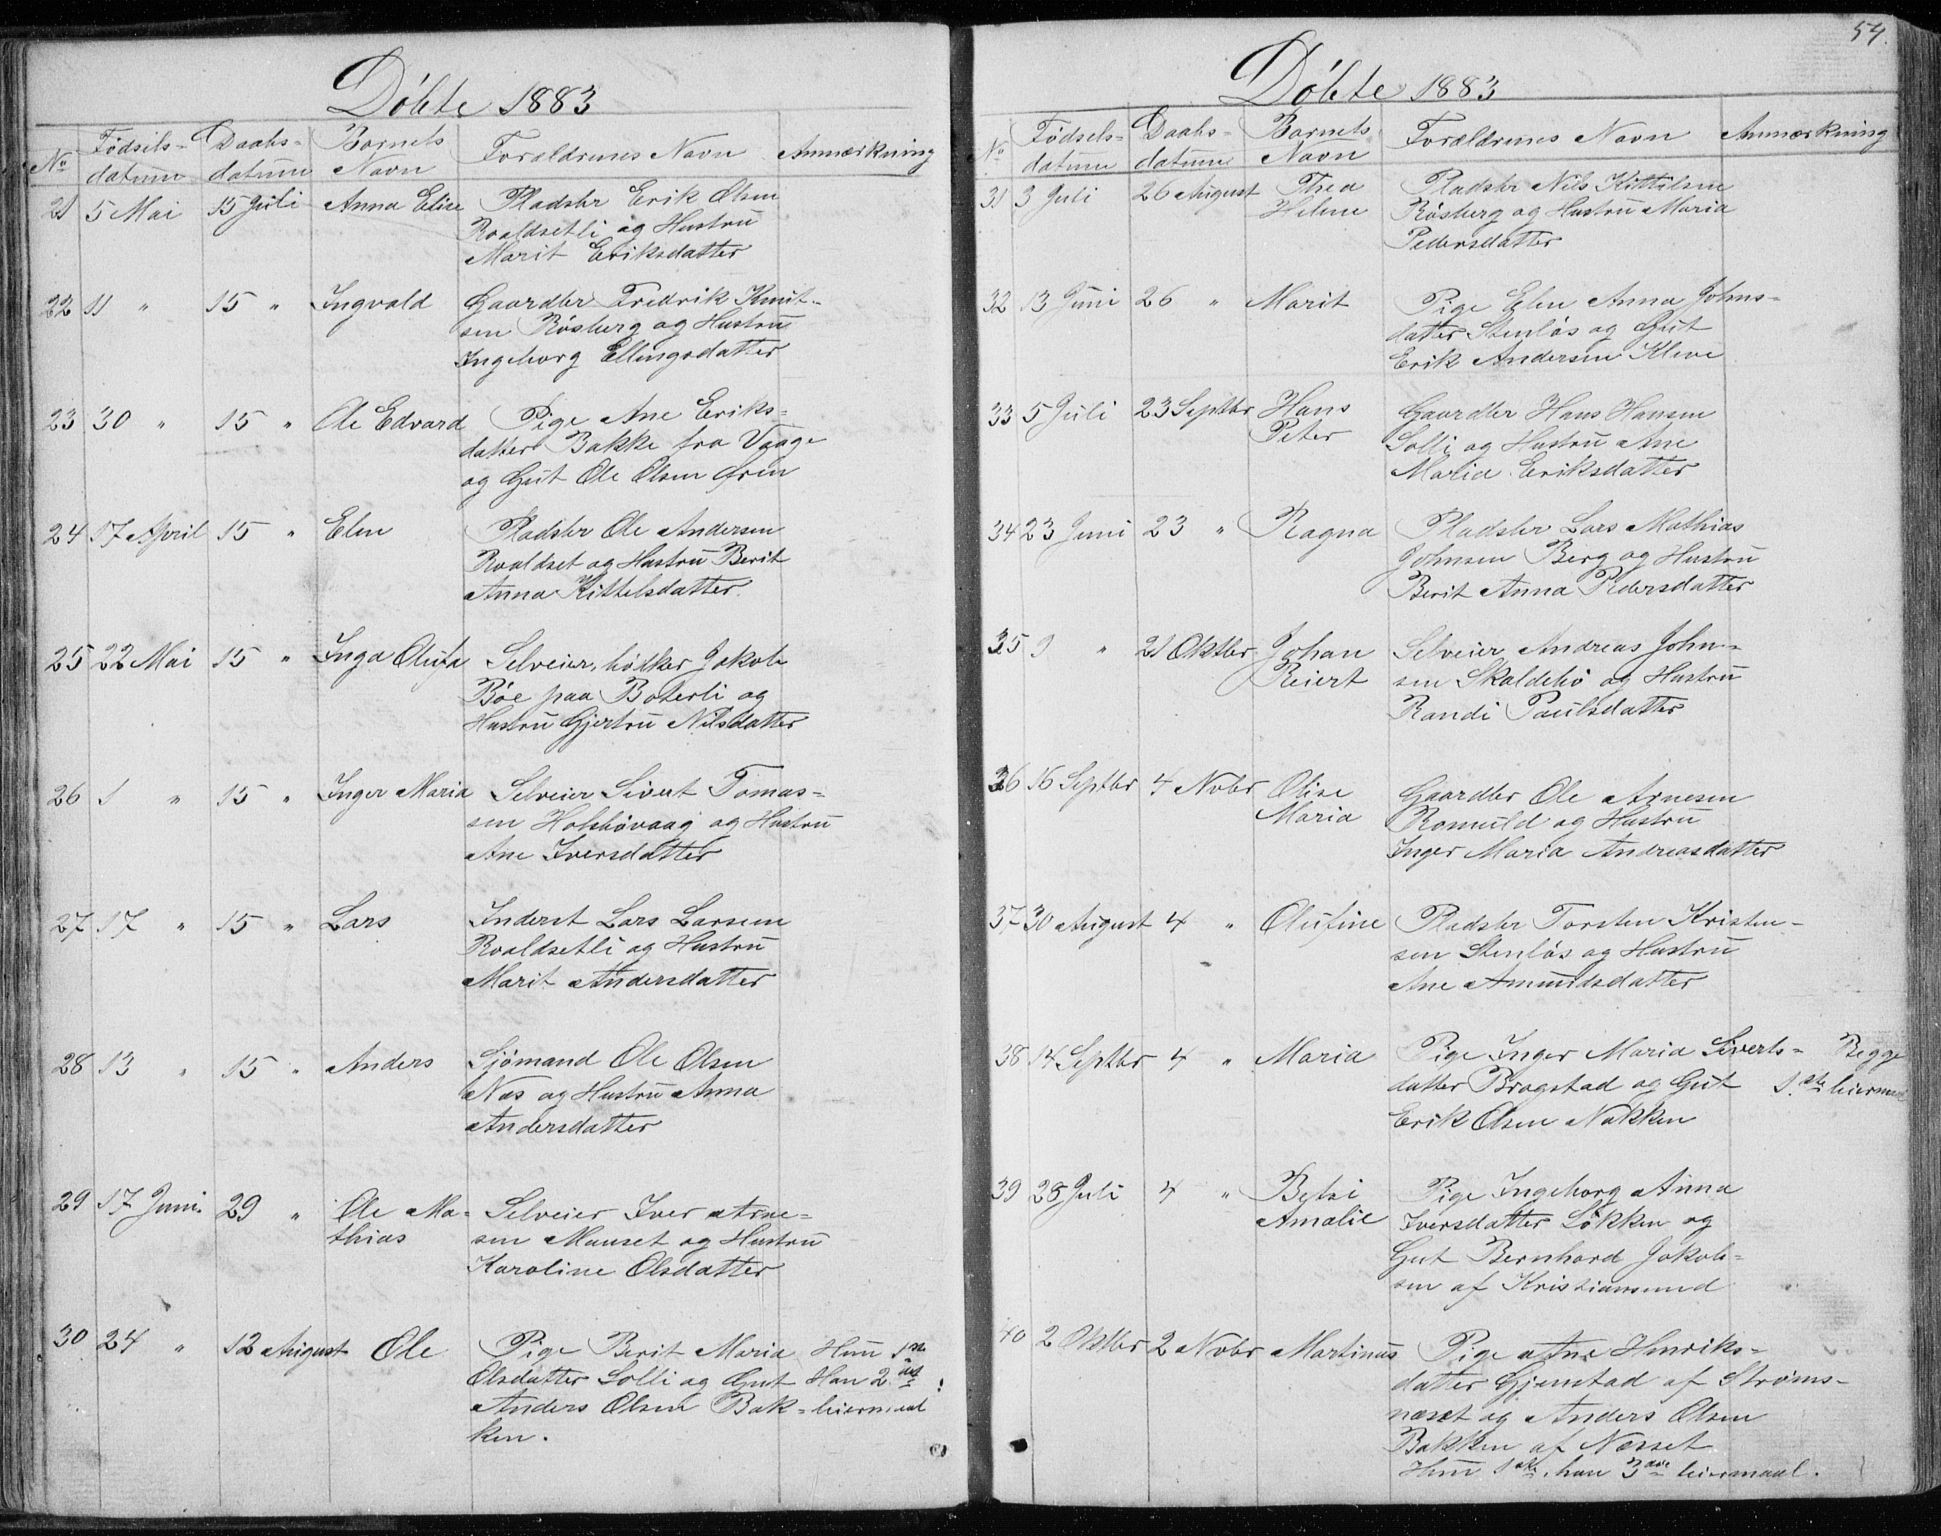 Döbte 1883
No Fødsels-datum Daabs-datum Barnets Navn Forældrenes Navn Anmærkning
21 5 Mai 15 Juli Anna Elise Pladsbr Erik Olsen
Roaldsetli og Hustru
Marit Eriksdatter
22 11 " 15 " Ingvald Gaardbr Fredrik Knut-
sen Rösberg og Hustru
Ingeborg Ellingsdatter
23 30 " 15 " Ole Edvard Pige Ane Eriks-
datter Bakke fra Vaage
og Gut Ole Olsen
24 17 April 15 " Elen Pladsbr Ole Andersen
Roaldset og Hustru Berit
Anna Kittelsdatter
25 22 Mai 15 " Inga Olufa Selveier, bödker Jakob
Böe paa Boterli og
Hustru Gjertru Nilsdatter
26 1 " 15 " Inger Maria Selveier Sivert Tomas-
sen Holsbövaag og Hustru
Ane Iversdatter
27 17 " 15 " Lars Inderst Lars Larsen
Roaldsetli og Hustru
Marit Andersdatter
28 13 " 15 " Anders Sjömand Ole Olsen
Næs og Hustru Anna
Andersdatter
29 17 Juni 29 " Ole Ma- Selveier Iver Arne-
thias sen Mauset og Hustru
Karoline Olsdatter
30 24 " 12 August Ole Pige Berit Maria Hun 1ste
Olsdatter Solli og Gut Han 2det
Anders Olsen Bak- leiermaal
ken.
54.
Döbte 1883
No Fødsels-datum Daabs-datum Barnets Navn Forældrenes Navn Anmærkning
31 3 Juli 26 August Thea Pladsbr Nils Kittilsen
Helene Rösberg og Hustru Maria
Pedersdatter
32 13 Juni 26 " Marit Pige Elen Anna Johns-
datter Stenlös og Gut
Erik Andersen Kleve
33 5 Juli 23 Septbr Hans Gaardbr Hans Hansen
Peter Solli og Hustru Ane
Maria Eriksdatter
34 23 Juni 23 " Ragna Pladsbr Lars Mathias
Johnsen Berg og Hustru
Berit Anna Pedersdatter
35 9 " 21 Oktbr Johan Selveier Andreas John-
Reiert sen Skaldebö og Hustru
Randi Paulsdatter
36 16 Septbr 4 Nvbr Olise Gaardbr Ole Arnesen
Maria Romuld og Hustru
Inger Maria Andreasdatter
37 30 August 4 " Olufine Pladsbr Torsten Kristen-
sen Stenlös og Hustru
Ane Amundsdatter
38 14 Septbr 4 " Maria Pige Inger Maria Siverts- Begge
datter Brogstad og Gut 1ste leiermaal
Erik Olsen Nakken
39 28 Juli 4 " Betzi Pige Ingeborg Anna
Amalie Iversdatter Lökken og
Gut Bernhard Jakob-
sen af Kristiansund
40 2 Oktbr 2 Nvbr Martinus Pige Ane Henriks-
datter Gjenstad af Ströms-
næset og Anders Olsen
Bakken af Nesset
Hun 1ste, han 3die leiermaal.